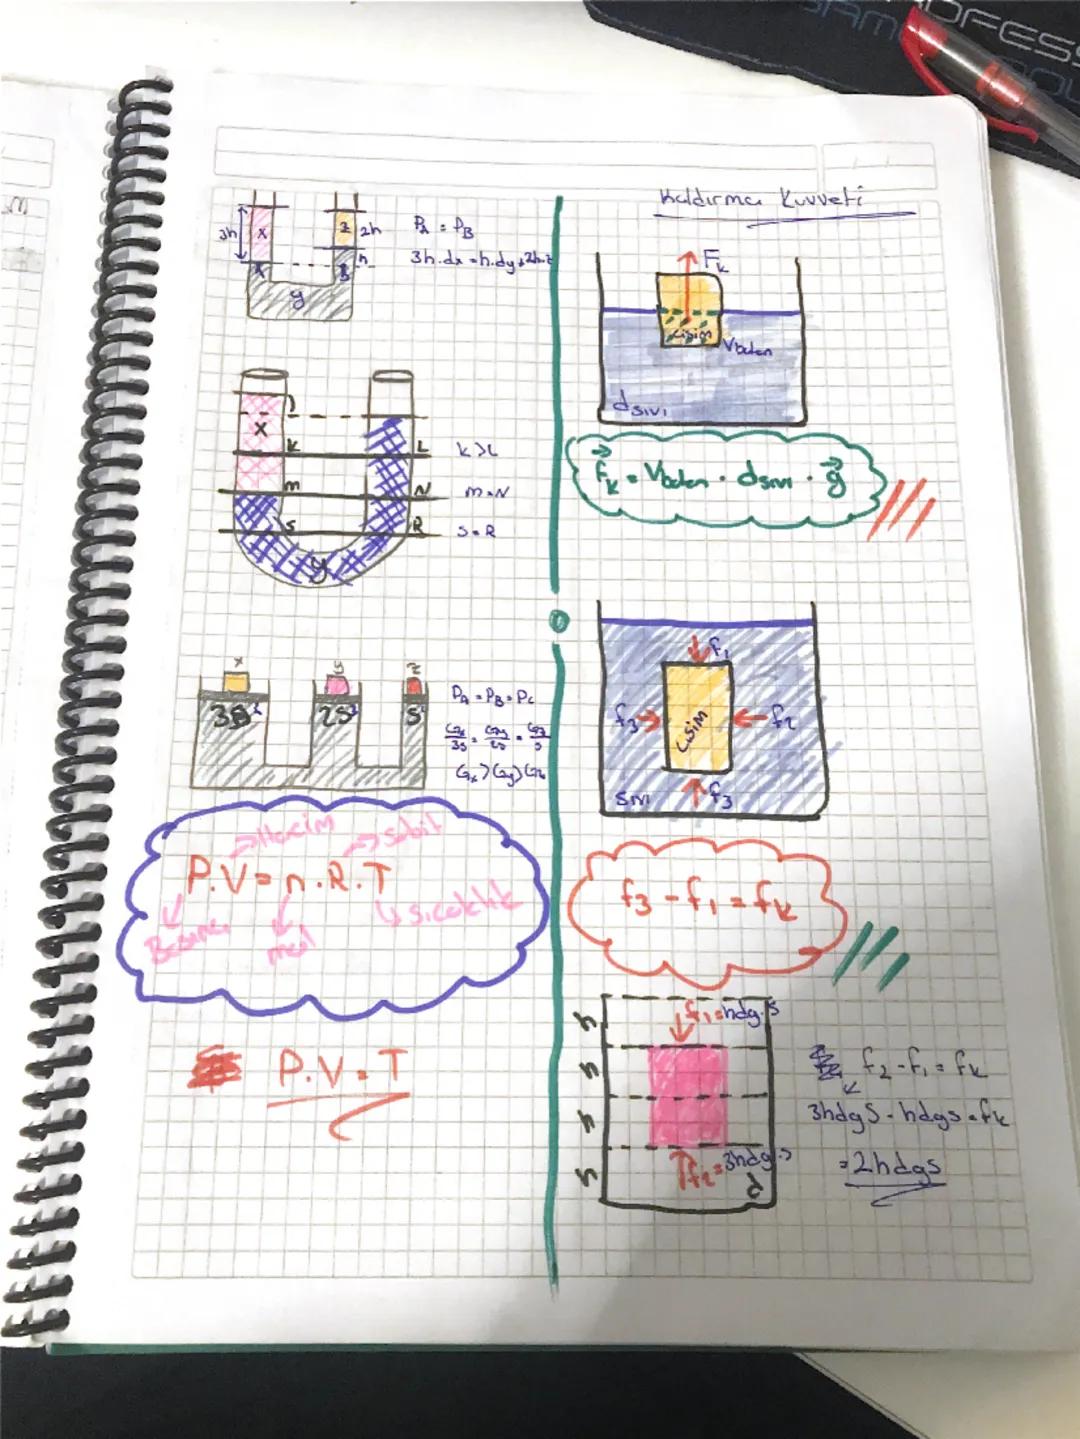 3h
x
z
2h
h
A
B
y
PA = PB
3h.dx = h.dy + 2h.z
x
K
L
K > L
m
N
m = N
S
R
S = R
y
x
y
z
3S
2S
S
PA = PB = PC
Gx/3S = Gy/2S = Gz/S
Gx > Gy > Gz
Hacim
Sabit
P.V = n.R.T
Basınç
mol
sıcaklık
P.V = T
Kaldırma Kuvveti
Fk
Cisim
Vbatan
dsıvı
Fk = Vbatan . dsıvı . g
f1
f3
Cisim
f2
Sıvı
f3
f3 - f1 = fk
h
f1 = hdg.S
h
h
f2 = 3hdg.S
h
d
f2 - f1 = fk
3hdgS - hdgS = fk
= 2hdgS